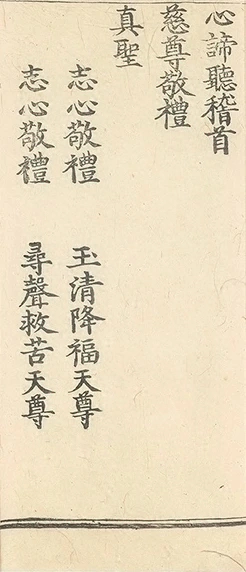 心諦聽稽首
慈尊敬禮
真聖
志心敬禮 玉清降福天尊
志心敬禮 尋聲救苦天尊